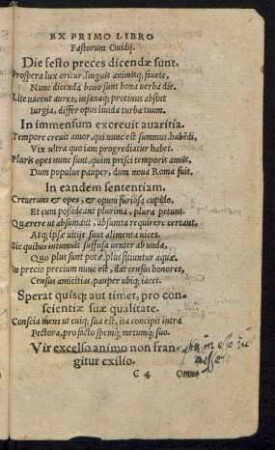 EX PRIMO LIBRO
Fastorum Ouidij.
Die festo preces dicendæ sunt.
Prospera lux oritur, linguis animisq; fauete,
Nunc dicenda bono sunt bona uerba die.
Lite uacent aures, insanaq; protinus absint
Iurgia, differ opus liuida turba tuum.
In immensum excreuit auaritia.
Tempore creuit amor, qui nunc est summus, habēdi,
Vix ultra quo iam progrediatur habet.
Pluris opes nunc sunt, quàm prisci temporis annis,
Dum populus pauper, dum noua Roma fuit.
In eandem sententiam.
Creuerunt & opes, & opum furiosa cupido,
Et cum possideant plurima, plura petunt.
Quærere ut absumant, absumta requirere certant,
Atq; ipsæ uitijs sunt alimenta uices.
Sic quibus intumuit suffusa uenter ab unda,
Quo plus sunt potæ, plus sitiuntur aquæ.
In precio precium nunc est, dat census honores,
Census amicitias, pauper ubiq; iacet.
Sperat quisq; aut timet, pro con
scientiæ suæ qualitate.
Conscia mens ut cuiq; sua est, ita concipit intra
Pectora, pro facto spemq; metumq; suo.
Vir excelso animo non fran
gitur exilio.
C 4 Omne